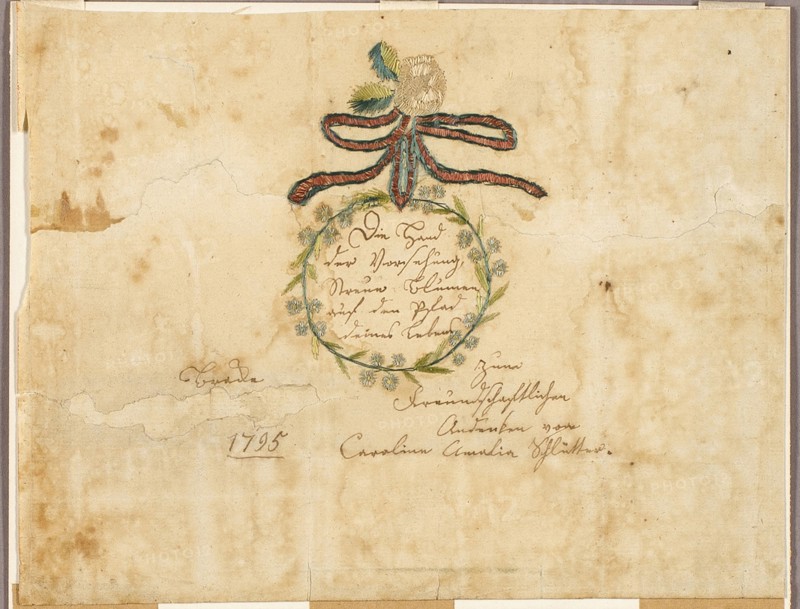 Die Hand
der Vorsehung,
Streue Blumen
auf den Pfad
deines Lebens
Brake
1795
Zum
Freundschaftlichen
Andenken von
Caroline Amalia Schlütter.